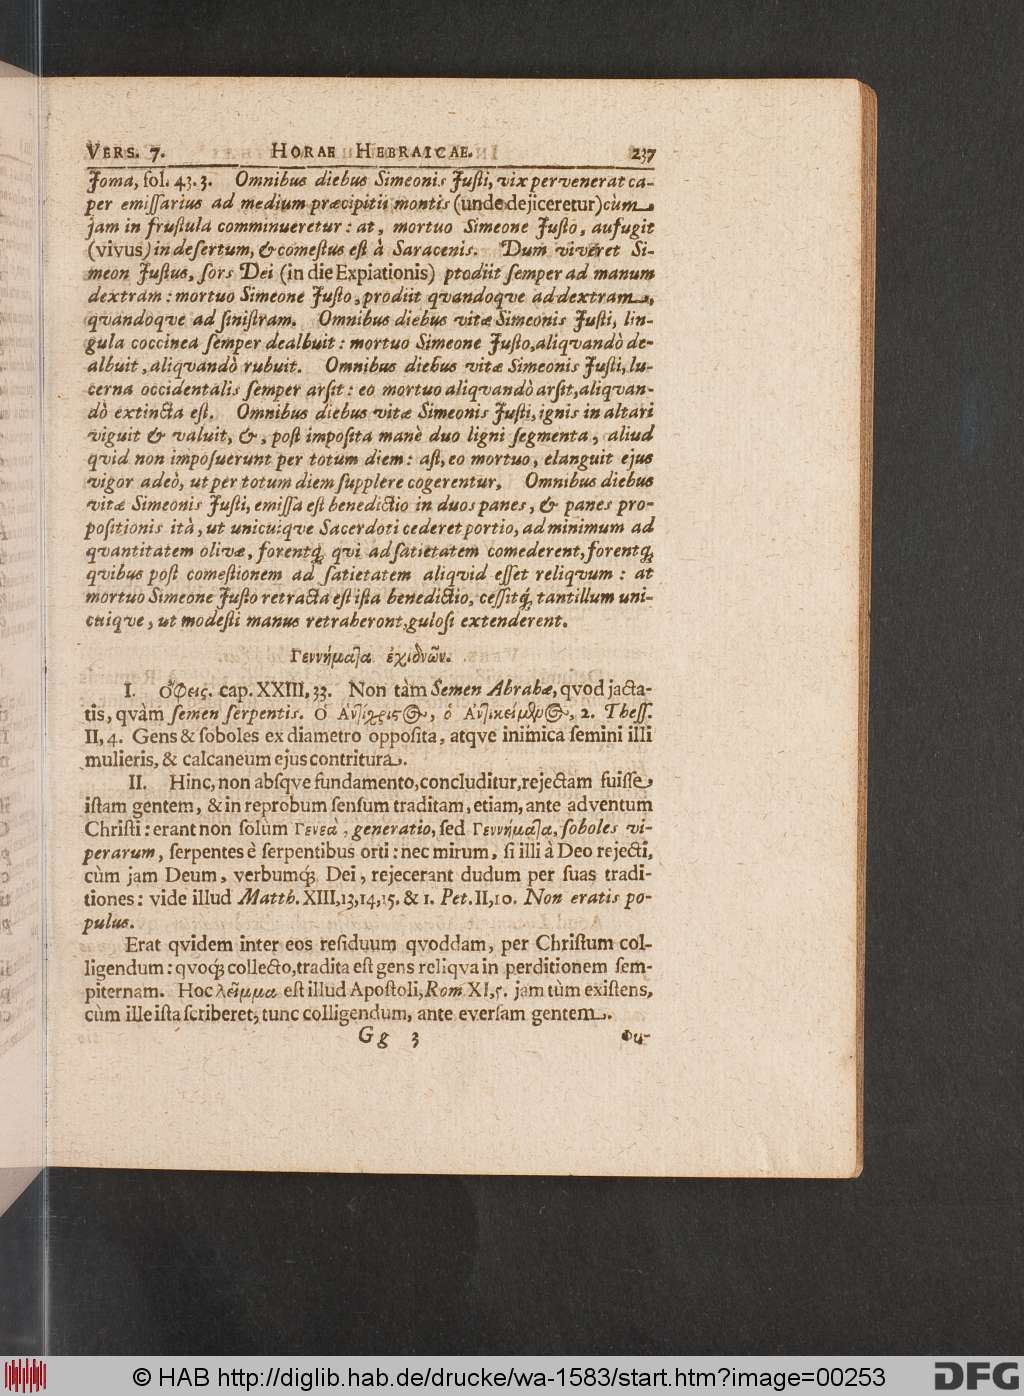 VERS. 7. HORAE HEBRAICAE. 237
Joma, fol. 43. 3. Omnibus diebus Simeonis Justi, vix pervenerat ca-
per emissarius ad medium præcipitii montis (unde dejiceretur) cum
jam in frustula comminueretur: at, mortuo Simeone Justo, aufugit
(vivus) in desertum, & comestus est à Saracenis. Dum viveret Si-
meon Justus, sors Dei (in die Expiationis) ptodiit semper ad manum
dextram: mortuo Simeone Justo, prodiit qvandoqve ad dextram,
qvandoqve ad sinistram. Omnibus diebus vitæ Simeonis Justi, lin-
gula coccinea semper dealbuit: mortuo Simeone Justo, aliqvandò de-
albuit, aliqvandò rubuit. Omnibus diebus vitæ Simeonis Justi, lu-
cerna occidentalis semper arsit: eo mortuo aliqvandò arsit, aliqvan-
dò extincta est. Omnibus diebus vitæ Simeonis Justi, ignis in altari
viguit & valuit, &, post imposita manè duo ligni segmenta, aliud
qvid non imposuerunt per totum diem: ast, eo mortuo, elanguit ejus
vigor adeò, ut per totum diem supplere cogerentur, Omnibus diebus
vitæ Simeonis Justi, emissa est benedictio in duos panes, & panes pro-
positionis ità, ut unicuiqve Sacerdoti cederet portio, ad minimum ad
qvantitatem olivæ, forentq́; qvi ad satietatem comederent, forentq́;
qvibus post comestionem ad satietatem aliqvid esset reliqvum: at
mortuo Simeone Justo retracta est ista benedictio, cessitq́; tantillum uni-
cuiqve, ut modesti manus retraherent, gulosi extenderent.
Γεννήματα ἐχιδνῶν.
I. Ὄφεις. cap. XXIII, 33. Non tàm Semen Abrahæ, qvod jacta-
tis, qvàm semen serpentis. Ὁ Ἀντίχριστος, ὁ Ἀντικείμενος, 2. Thess.
II, 4. Gens & soboles ex diametro opposita, atqve inimica semini illi
mulieris, & calcaneum ejus contritura.
II. Hinc, non absqve fundamento, concluditur, rejectam fuisse
istam gentem, & in reprobum sensum traditam, etiam, ante adventum
Christi: erant non solùm Γενεὰ, generatio, sed Γεννήματα, soboles vi-
perarum, serpentes è serpentibus orti: nec mirum, si illi à Deo rejecti,
cùm jam Deum, verbumq́; Dei, rejecerant dudum per suas tradi-
tiones: vide illud Matth. XIII, 13, 14, 15. & 1. Pet. II, 10. Non eratis po-
pulus.
Erat qvidem inter eos residuum qvoddam, per Christum col-
ligendum: qvoq́; collecto, tradita est gens reliqva in perditionem sem-
piternam. Hoc λεῖμμα est illud Apostoli, Rom XI, 5. jam tùm existens,
cùm ille ista scriberet; tunc colligendum, ante eversam gentem.
Gg 3
© HAB http://diglib.hab.de/drucke/wa-1583/start.htm?image=00253
DFG